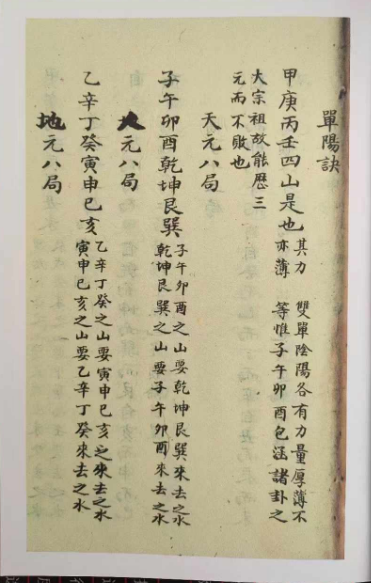 單陽訣
甲庚丙壬四山是也
其力
亦薄
雙單陰陽各有力量厚薄不
等惟子午卯酉包涵諸卦之
大宗祖故能歷三
元而不敗也
天元八局
子午卯酉乾坤艮巽
子午卯酉之山要乾坤艮巽來去之水
乾坤艮巽之山要子午卯酉來去之水
人元八局
乙辛丁癸寅申巳亥
乙辛丁癸之山要寅申巳亥來去之水
寅申巳亥之山要乙辛丁癸來去之水
地元八局